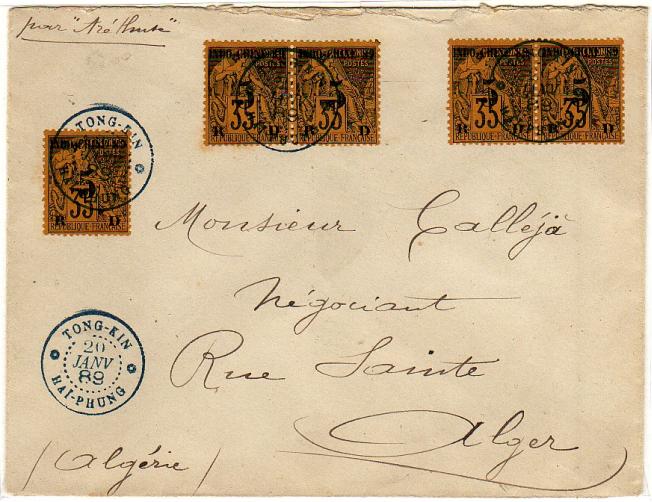 par "Aréthuse"
INDO-CHINE 89 INDO-CHINE 89
POSTES POSTES
5 5
35 35
R D R D
REPUBLIQUE FRANÇAISE REPUBLIQUE FRANÇAISE
INDO-CHINE 89 INDO-CHINE 89
POSTES POSTES
5 5
35 35
R D R D
REPUBLIQUE FRANÇAISE REPUBLIQUE FRANÇAISE
TONG-KIN
5
35
R D
REPUBLIQUE FRANÇAISE
Monsieur Calléjà
Négociant
Rue Sainte
Alger
(Algérie)
TONG-KIN
20
JANV
89
HAI-PHUNG